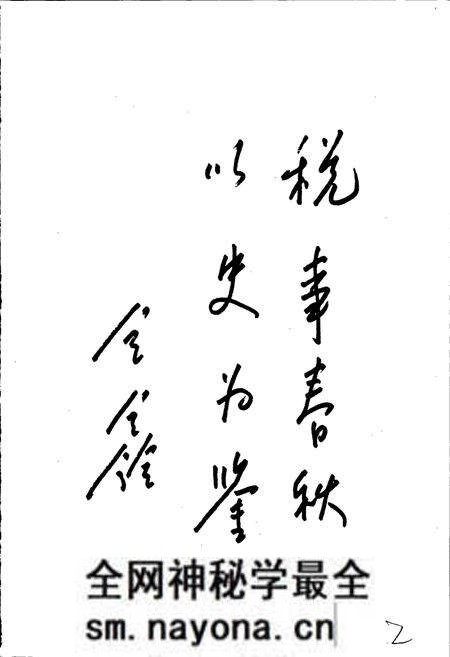 税事春秋
以史为鉴
全网神秘学最全
sm.nayona.cn
2